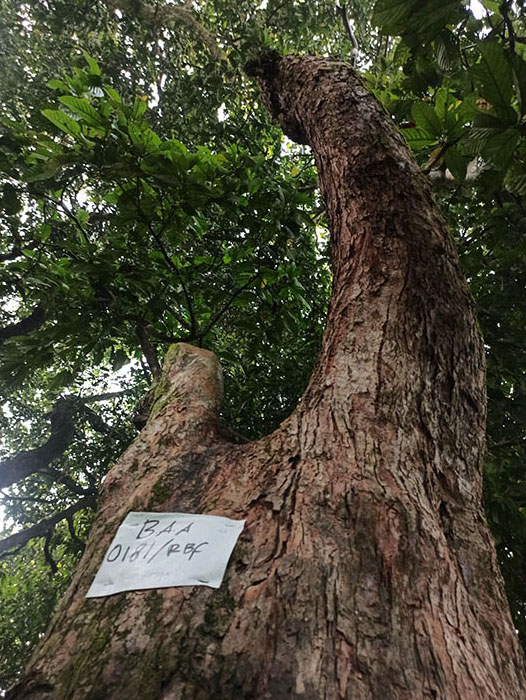 BAA
0181/RBF